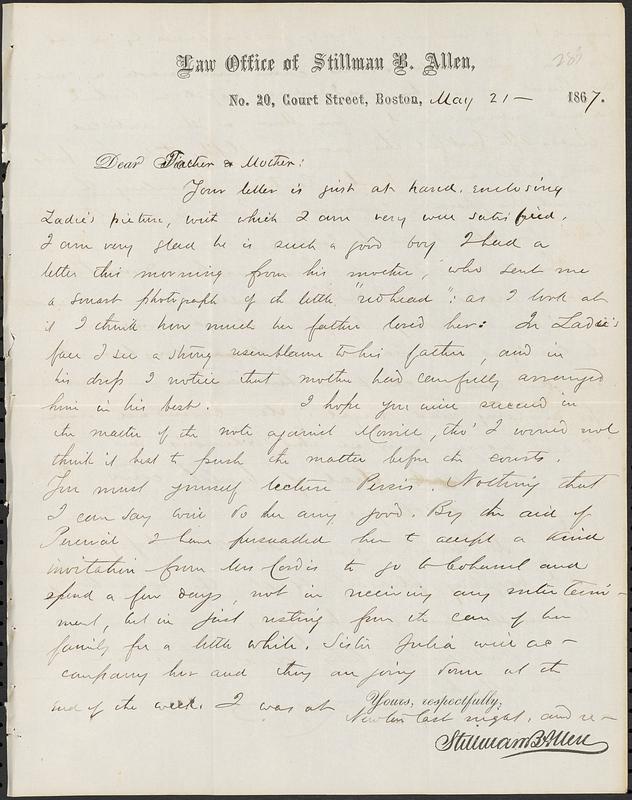 289
Law Office of Stillman B. Allen,
No. 20, Court Street, Boston, May 21 — 1867.
Dear Father & Mother:
Your letter is just at hand, enclosing
Ladie's picture, with which I am very well satisfied.
I am very glad he is such a good boy I had a
letter this morning from his mother, who sent me
a smart photograph of the little "redhead": as I look at
it I think how much her father loved her: In Ladie's
face I see a strong resemblance to his father, and in
his dress I notice that mother had carefully arranged
him in his best. I hope you will succeed in
the matter of the note against Morrill, tho' I would not
think it best to push the matter before the courts.
You must yourself lecture Persis. Nothing that
I can say will do her any good. By the aid of
Percival I have persuaded her to accept a kind
invitation from Mrs Cordis to go to Cohasset and
spend a few days, not in receiving any entertain-
ment, but in just resting from the care of her
family for a little while. Sister Julia will ac-
company her and they are going down at the
end of the week. I was at
Yours, respectfully,
Newton last night, and re-
Stillman B Allen